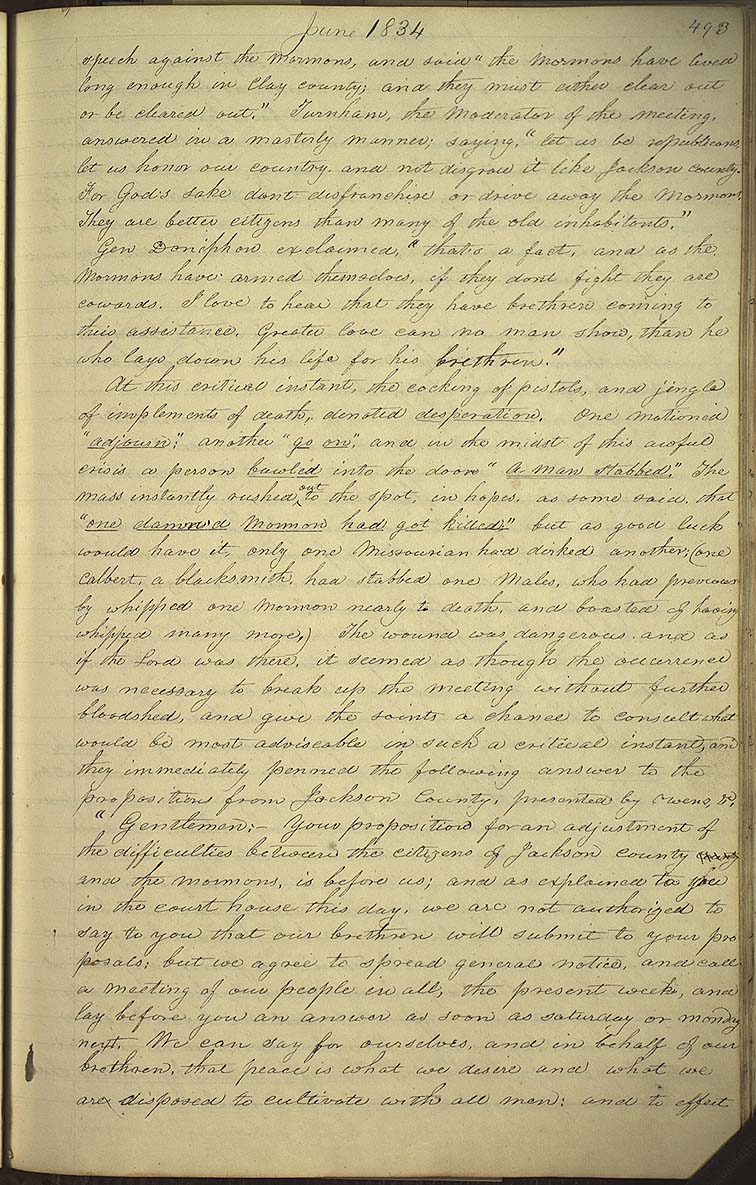 June 1834
493
speech against the Mormons, and said "the Mormons have lived
long enough in Clay county; and they must either clear out
or be cleared out." Turnham, the Moderator of the meeting,
answered in a masterly manner; saying, "let us be republicans,
let us honor our country. and not disgrace it like Jackson county.
For God's sake dont disfranchise or drive away the Mormons.
They are better citizens than many of the old inhabitants."
Gen Doniphan exclaimed, "that's a fact, and as the
Mormons have armed themselves, if they dont fight they are
cowards. I love to hear that they have brethren coming to
their assistance. Greater love can no man show, than he
who lays down his life for his brethren."
At this critical instant, the cocking of pistols, and jingle
of implements of death, denoted desperation. One motioned
"adjourn"; another "go on", and in the midst of this awful
crisis a person bawled into the door "a man stabbed." The
mass instantly rushed out to the spot, in hopes, as some said, that
"one damn'd Mormon had got killed," but as good luck
would have it, only one Missourian had dirked another; (one
Calbert, a blacksmith, had stabbed one Males, who had previous
ly whipped one Mormon nearly to death, and boasted of having
whipped many more.) The wound was dangerous. and as
if the Lord was there, it seemed as though the occurrence
was necessary to break up the meeting without further
bloodshed, and give the saints a chance to consult what
would be most adviseable in such a critical instant, and
they immediately penned the following answer to the
propositions from Jackson County, presented by Owens, &c.
"Gentlemen;– Your propositions for an adjustment of
the difficulties between the citizens of Jackson county
and the mormons, is before us; and as explained to you
in the court house this day, we are not authorized to
say to you that our brethren will submit to your pro
posals; but we agree to spread general notice, and call
a meeting of our people in all, the present week, and
lay before you an answer as soon as saturday or monday
next. We can say for ourselves, and in behalf of our
brethren, that peace is what we desire and what we
are disposed to cultivate with all men; and to effect